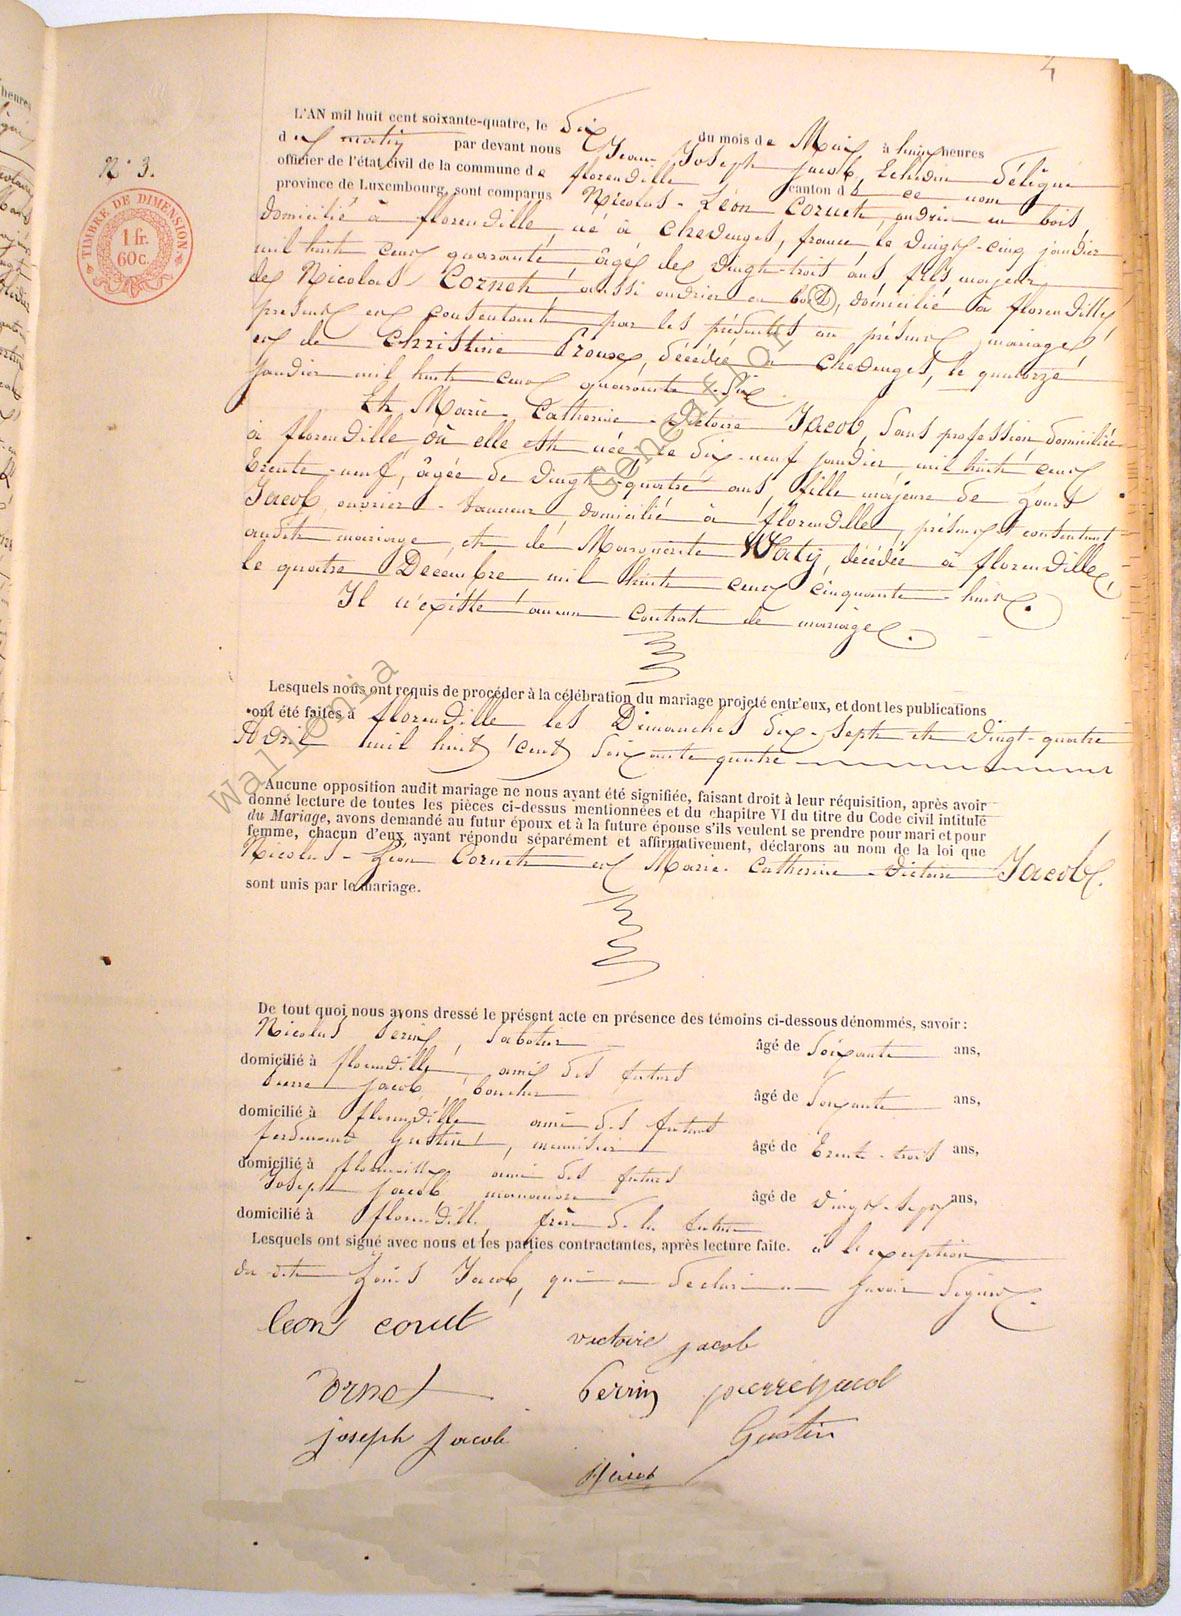 4
N° 3.
TIMBRE DE DIMENSION
1 fr.
60 c.
L'AN mil huit cent soixante-quatre, le dix du mois de Mai à huit heures
du matin par devant nous Jean-Joseph Jacob, Echevin délégué
officier de l'état civil de la commune de florenville canton de ce nom
province de Luxembourg, sont comparus Nicolas-Léon Cornet, ouvrier en bois
domicilié à florenville, né à Chevenges, france, le vingt-cinq janvier
mil huit cent quarante âgé de vingt-trois ans, fils majeur
de Nicolas Cornet aussi ouvrier en bois, domicilié à florenville,
présent et consentant par les présentes au présent mariage,
et de Christine décédée à Chevenges, le quatorze
Janvier mil huit cent quarante-six
Et Marie-Catherine-Victoire Jacob, sans profession domiciliée
à florenville où elle est née le dix-neuf janvier mil huit cent
trente-neuf, âgée de vingt-quatre ans, fille majeure de Louis
Jacob, ouvrier-tanneur domicilié à florenville, présent et consentant
audit mariage, et de Marguerite Waty, décédée à florenville,
le quatre Decembre mil huit cent cinquante-huit.
Il n'existe aucun contrat de mariage.
Lesquels nous ont requis de procéder à la célébration du mariage projeté entr'eux, et dont les publications
ont été faites à florenville les Dimanches dix-sept et vingt-quatre
Avril mil huit cent soixante quatre
Aucune opposition audit mariage ne nous ayant été signifiée, faisant droit à leur réquisition, après avoir
donné lecture de toutes les pièces ci-dessus mentionnées et du chapitre VI du titre du Code civil intitulé
du Mariage, avons demandé au futur époux et à la future épouse s'ils veulent se prendre pour mari et pour
femme, chacun d'eux ayant répondu séparément et affirmativement, déclarons au nom de la loi que
Nicolas-Léon Cornet et Marie-Catherine-Victoire Jacob.
sont unis par le mariage.
De tout quoi nous avons dressé le présent acte en présence des témoins ci-dessous dénommés, savoir :
Nicolas Perin, Sabotier âgé de Soixante ans,
domicilié à florenville ami des futurs
Pierre Jacob, boucher âgé de Soixante ans,
domicilié à florenville ami des futurs
ferdinand Gustin, menuisier âgé de trente-trois ans,
domicilié à florenville ami des futurs
Joseph Jacob manoeuvre âgé de vingt-sept ans,
domicilié à florenville, frère de la future
Lesquels ont signé avec nous et les parties contractantes, après lecture faite. à l'exception
du dit Louis Jacob, qui a déclaré ne savoir signer.
Leon cornet
victoire jacob
Cornet
Perrin
pierre jacob
joseph jacob
Gustin
Jacob
Wallonia Genealogy